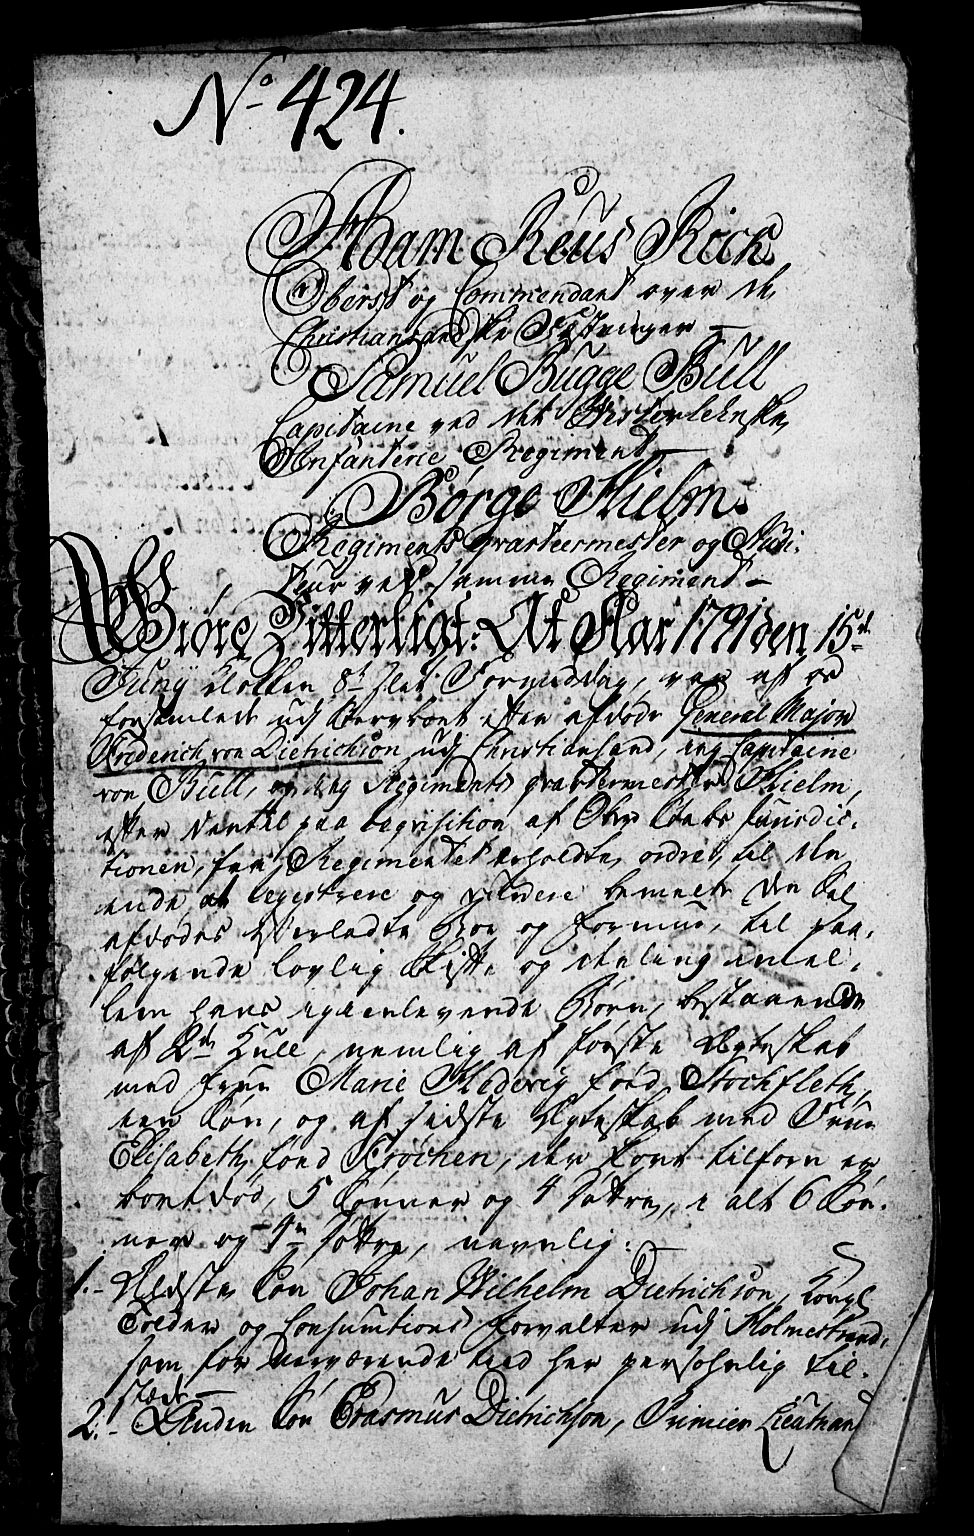 No 424.
Adam Reus Röck
Oberst og Commendant over de
Christiansandske Fæstninger —
Samuel Bugge Bull
Capitaine ved det Westerlehnske
Infanterie Regiment —
Børge Hielm.
Regiments Qvarteermester og Audi-
teur ved samme Regiment —
Giøre Vitterligt: At Aar 1791 den 15de
Juny Klokken 8t Slet Formiddag, var af os
forsamlede udj Stervboet efter afdøde General Major
Friderich von Dietrichson udj Christiansand, ieg Capitaine
von Bull, og ieg Regiments qvartermester Hielm,
efter Vented paa Reqvisition af Over Krigs Jurisdic-
tionen, fra Regimentet erholdte ordre, til den
ende at registrere og vurdere bemelte den Sal.
afdødes Efterladte Boe og Formue, til paa-
følgende lovlig Skifte og deeling imel-
lem hans igienlevende Børn, bestaaende
af 2de Kull, nemlig af første Ægteskab
med Frue Marie Hedevig fød Stochfleth,
een Søn, og af sidste Ægteskab med Frue
Elisabeth fød Frøchen, der som tilforn er
bort død, 5 Sønner og 4 Døttre, i alt 6 Søn-
ner og 4re Døttre, nemlig:
1.- Ældste Søn Johan Wilhelm Dietrichson, Kongl.
Tolder og Consumtions Forvalter udj Holmestrand,
som for nærværende tiid her personlig til-
stæde —
2.- Anden Søn Erasmus Dietrichson, Primier Lieutnant